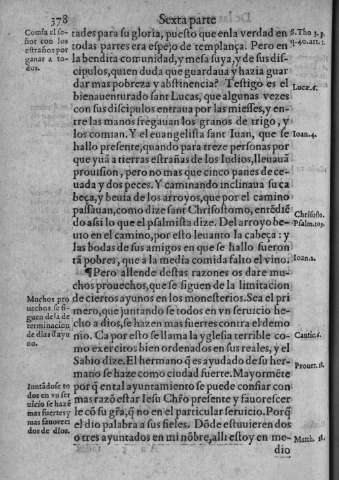 378
Sexta parte
Comia el se-
ñor con los
estraños por
ganar a to-
dos.
tades para su gloria, puesto que en la verdad en
todas partes era espejo de templança. Pero en
la bendita comunidad, y mesa suya, y de sus dis-
cipulos, quien duda que guardaua y hazia guar
dar mas pobreza y abstinencia? Testigo es el
bienauenturado sant Lucas, que algunas vezes
con sus discipulos entraua por las miesses, y en-
tre las manos fregauan los granos de trigo, y
los comian. Y el euangelista sant Iuan, que se
hallo presente, quando para treze personas que
que yuã a tierras estrañas de los Iudios, lleuauã
prouision, pero no mas que cinco panes de ce-
uada y dos peces. Y caminando inclinaua su ca
beça, y beuia de los arroyos, que por el camino
passauan, como dize sant Chrisostomo, entẽdiẽ
do assi lo que el psalmista dize. Del arroyo be-
uio en el camino, por esto leuanto la cabeça: y
las bodas de sus amigos en que se hallo fueron
tã pobres, que à la media comida falto el vino.
S. Tho 3. p.
q. 40. art. 2.
Luc. 6.
Ioan. 4.
Chrisosto.
Psalm. 109.
Ioan. 2.
¶Pero allende destas razones os dare mu-
chos prouechos, que se siguen de la limitacion
de ciertos ayunos en los monesterios. Sea el pri
mero, que juntando se todos en vn seruicio he-
cho a dios, se hazen mas fuertes contra el demo
nio. Ca por esto se llama la yglesia terrible co-
mo exercitos bien ordenados en sus reales, y el
Sabio dize. El hermano q̃ es ayudado de su her-
mano se haze como ciudad fuerte. Mayormẽte
por q̃ en tal ayuntamiento se puede confiar con
mas razõ estar Iesu Chr̃o presente y fauorescer
le cõ su gr̃a, q̃ no en el particular seruicio. Porq̃
el dio palabra a sus fieles. Dõde estuuieren dos
o tres ayuntados en mi nõbre, alli estoy en me-
dio
Muchos pro
uechos se si-
guen de la de
terminacion
de dias d ayu
no.
Iuntãdose to
dos en vn ser
uicio se hazẽ
mas fuertes y
mas fauoreci
dos de dios.
Cantic. 6.
Prouer. 18.
Matth. 18.